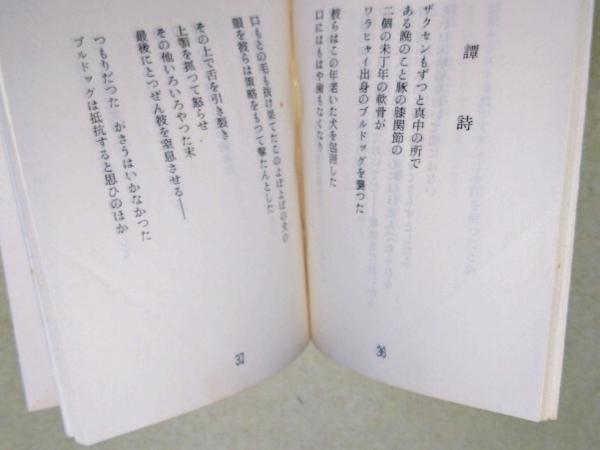 譚詩
ザクセンもずつと真中の所で
ある晩のこと豚の膝関節の
二個の未丁年の軟骨が
ワラヒャイ出身のブルドッグを襲つた
彼らはこの年老いた犬を包囲した
口にはもはや歯もなくなり
36
口もとの毛も抜け果てたこのよぼよぼの犬の
眼を彼らは策略をもつて撃たんとした
その上で舌を引き裂き
上顎を抓って怒らせ
その他いろいろやつた末
最後にとつぜん彼を窒息させる――
つもりだつた がさうはいかなかつた
ブルドッグは抵抗すると思ひのほか
37